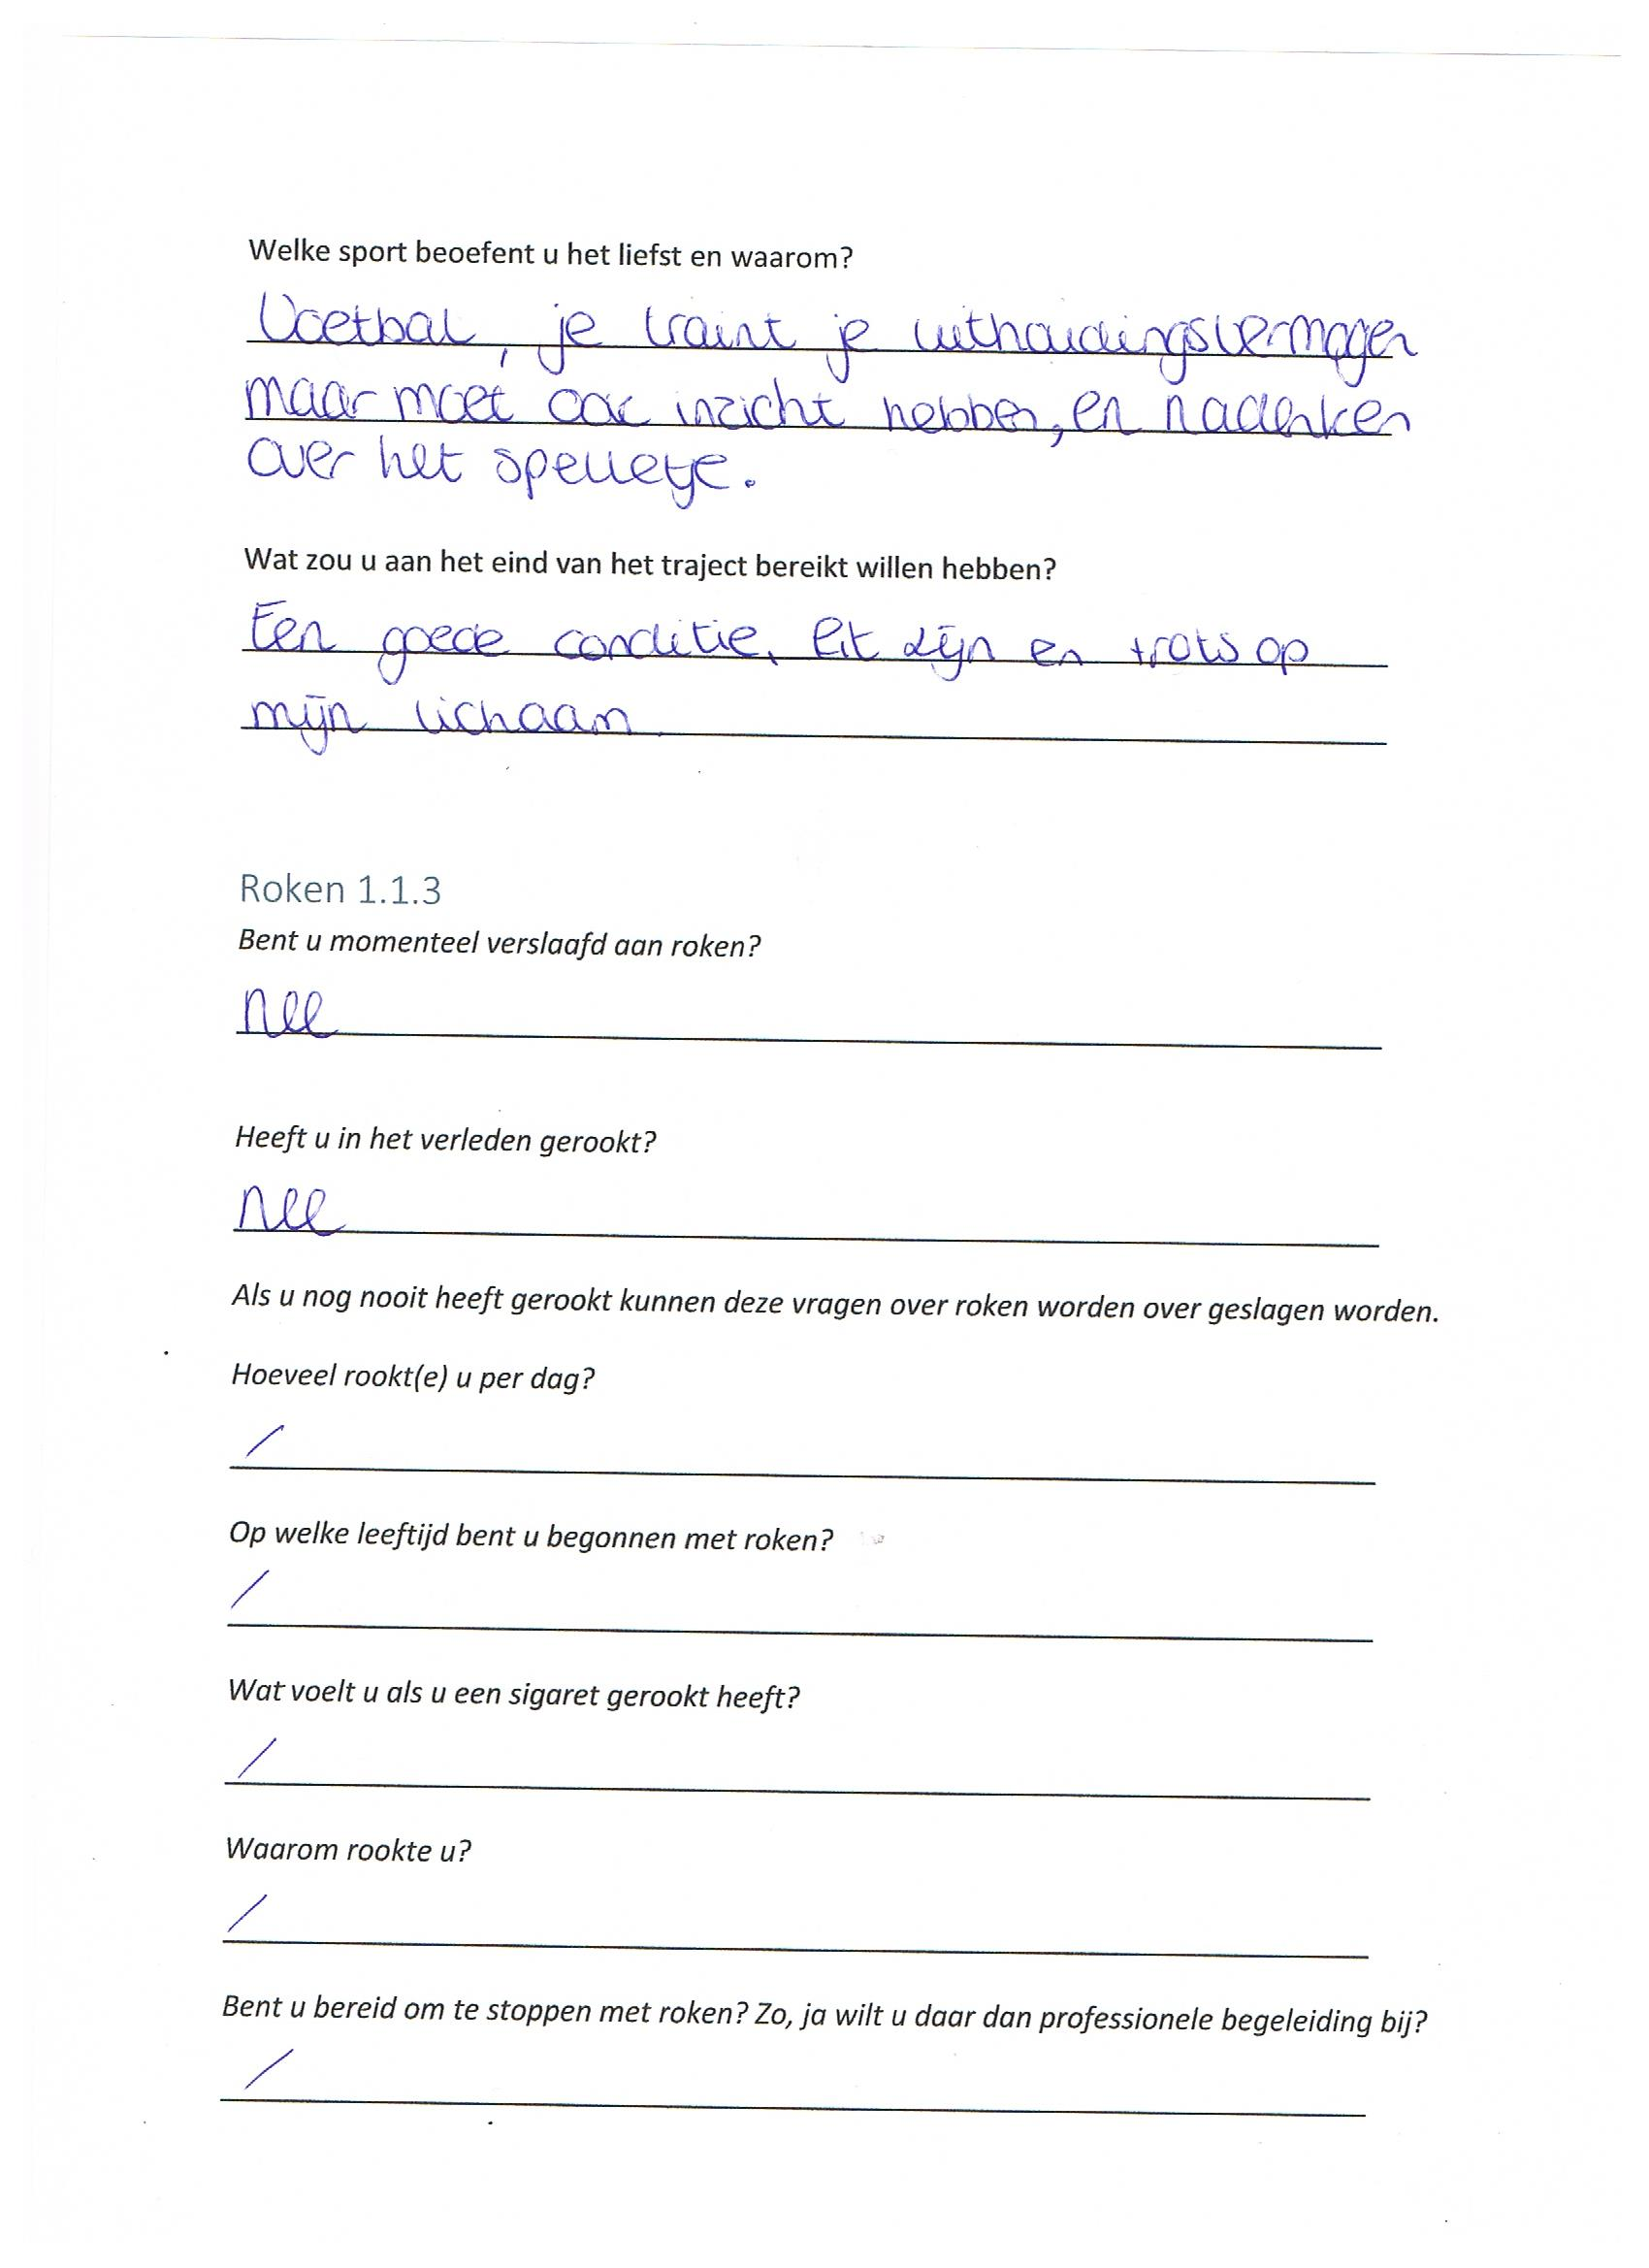 Welke sport beoefent u het liefst en waarom?
Voetbal, je traint je uithoudingsvermogen
maar moet ook inzicht hebben, en nadenken
over het spelletje.
Wat zou u aan het eind van het traject bereikt willen hebben?
Een goede conditie, fit zijn en trots op
mijn lichaam.
Roken 1.1.3
Bent u momenteel verslaafd aan roken?
nee
Heeft u in het verleden gerookt?
nee
Als u nog nooit heeft gerookt kunnen deze vragen over roken worden over geslagen worden.
Hoeveel rookt(e) u per dag?
/
Op welke leeftijd bent u begonnen met roken?
/
Wat voelt u als u een sigaret gerookt heeft?
/
Waarom rookte u?
/
Bent u bereid om te stoppen met roken? Zo, ja wilt u daar dan professionele begeleiding bij?
/